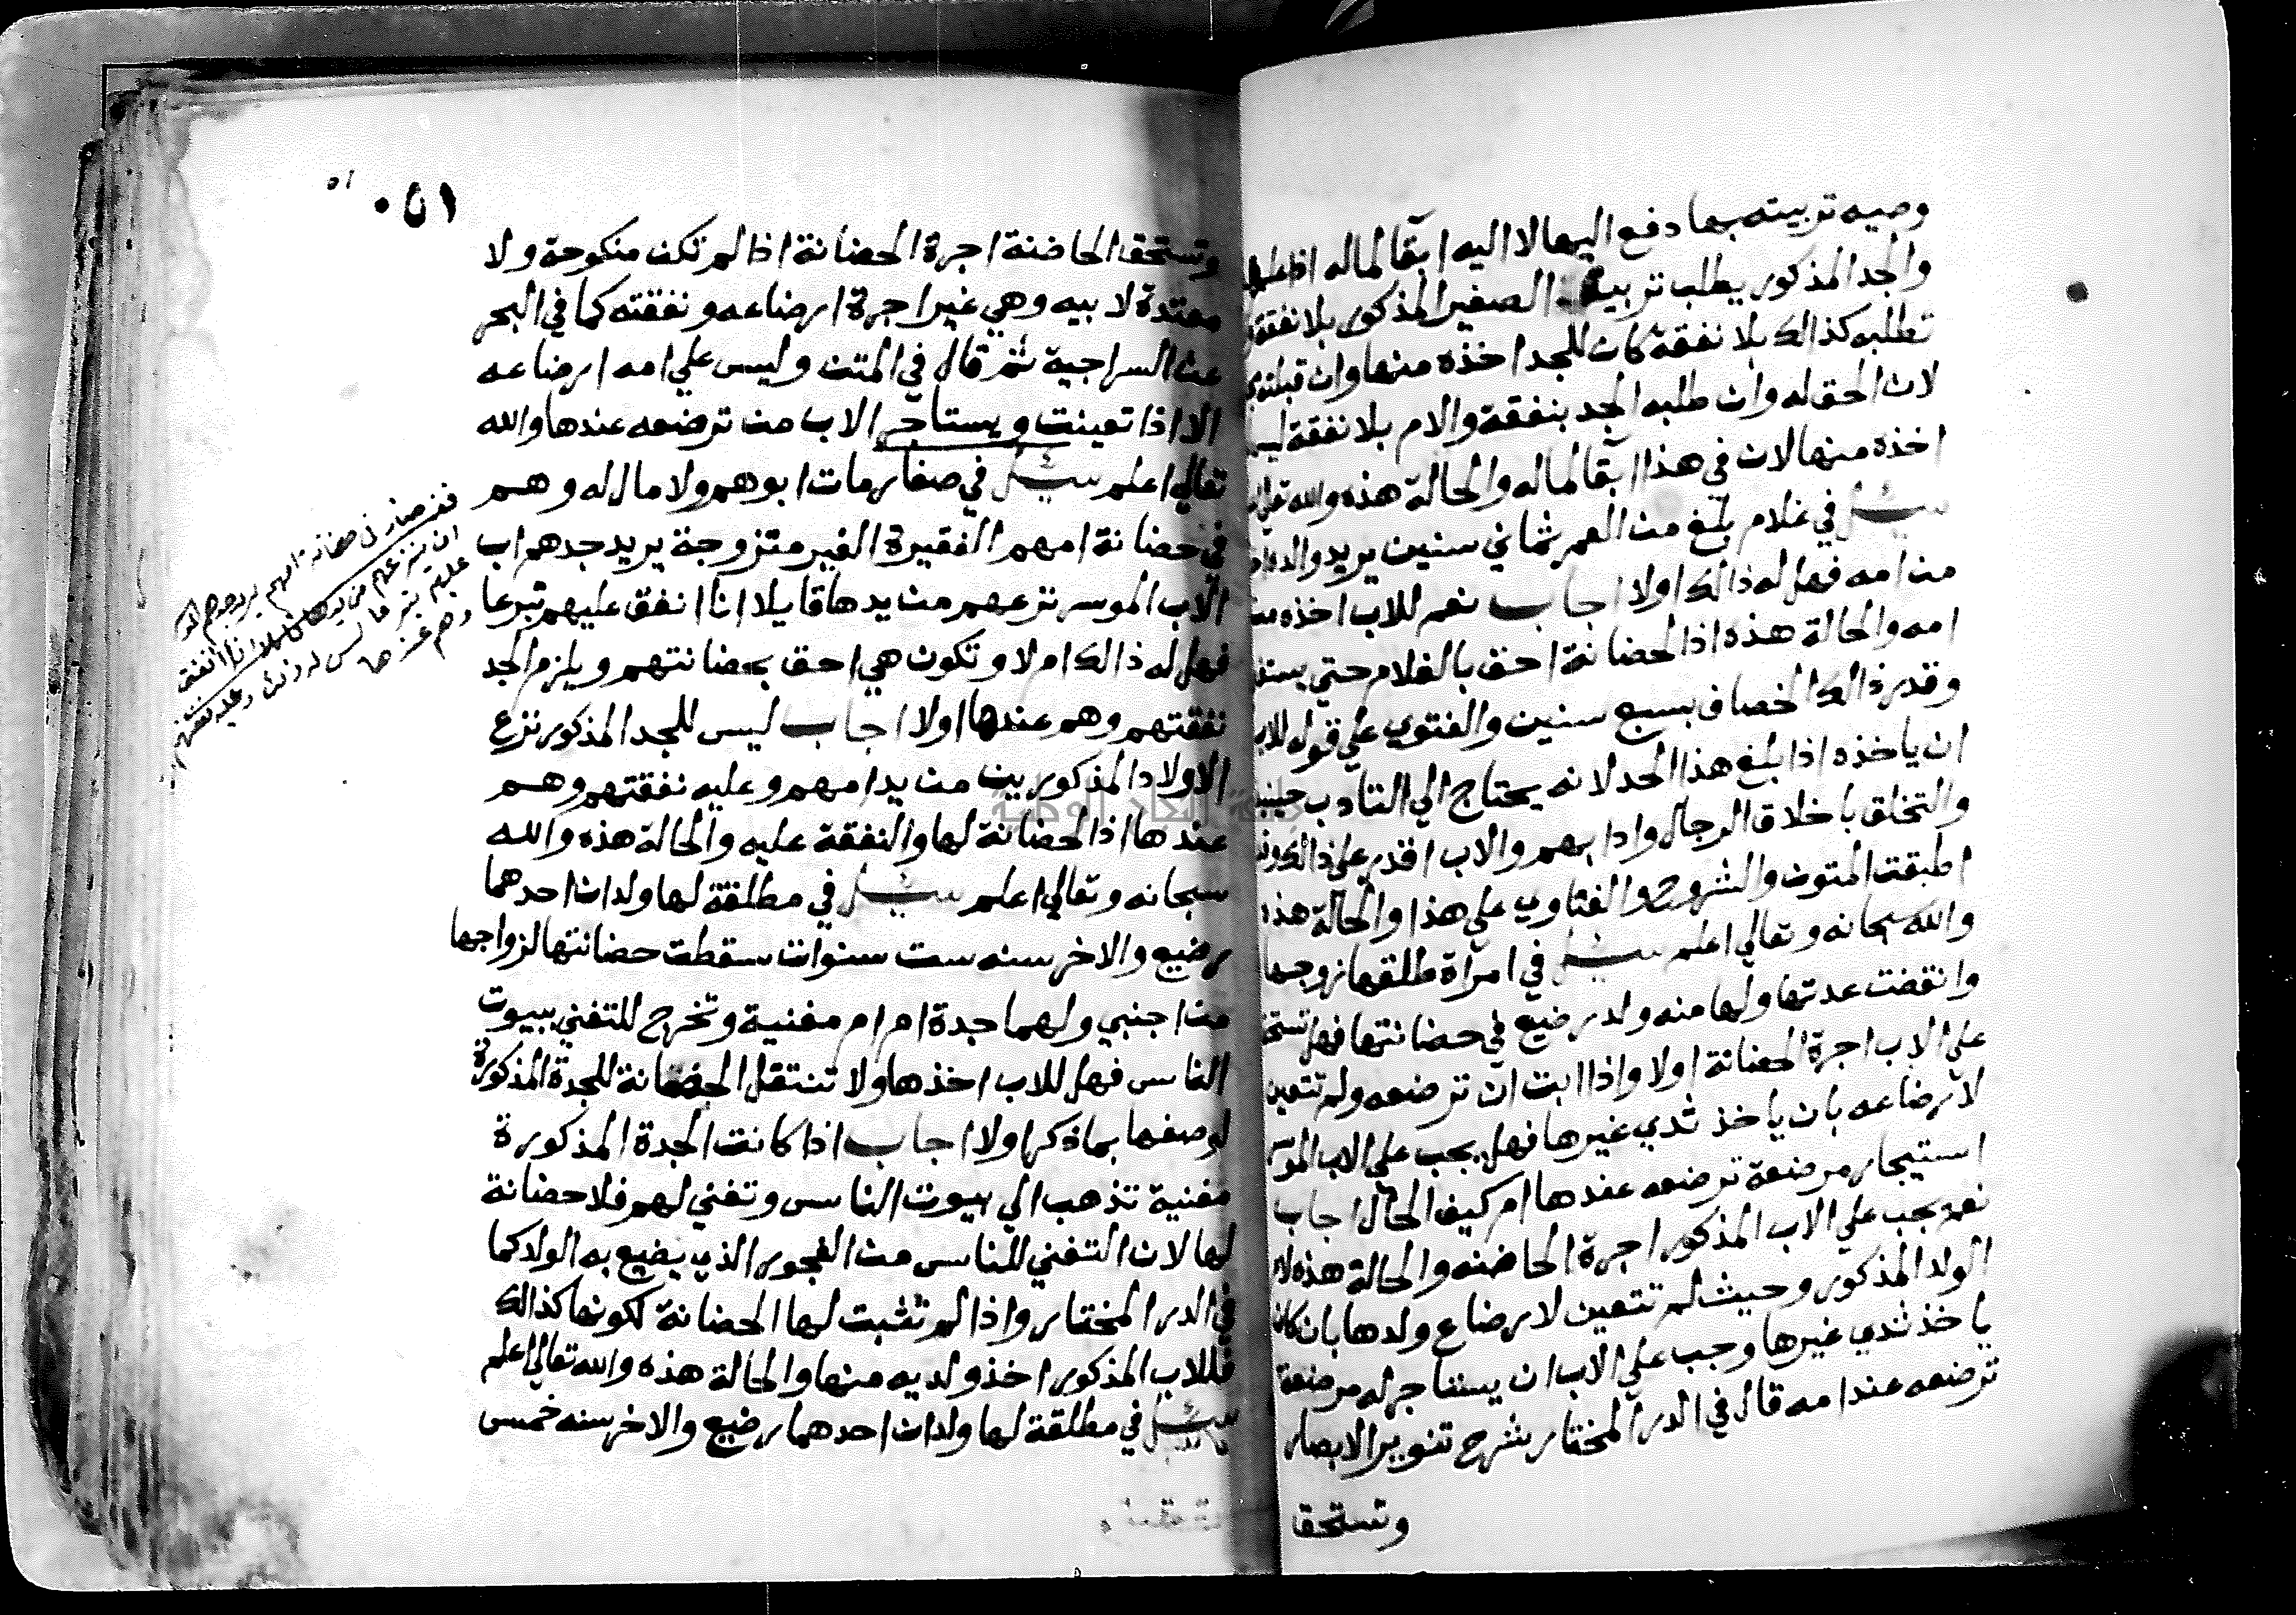 وصيه تربيته بها دفع اليها لا اليه ابقا لماله
والجد المذكور يطلب تربية الصغير المذكور بلا نفقة
تطلبه كذالك بلا نفقة كان للجد اخذه منها وان
لان الحق له وان طلبه الجد بنفقة والام بلا نفقة ليس
اخذه منها لان في هذا ابقا لماله والحالة هذه والله
سئل في غلام بلغ من العمر ثماني سنين يريد والده
من امه فهل له ذالك اولا اجاب نعم للاب اخذه
امه والحالة هذه اذ الحضانة احق بالغلام حتي
وقدر ذالك الخصاف بسبع سنين والفتوي علي قوله للاب
ان ياخذه اذا بلغ هذا الحد لانه يحتاج الي التادب
والتخلق باخلاق الرجال وادابهم والاب اقدر علي ذالك
اطبقت المتون والشروح والفتاوي علي هذا والحالة هذه
والله سبحانه وتعالي اعلم سئل في امراة طلقها زوجها
وانقضت عدتها ولها منه ولد رضيع في حضانتها فهل تستحق
علي الاب اجرة الحضانة اولا واذا ابت ان ترضعه ولم تتعين
لارضاعه بان ياخذ ثدي غيرها فهل يجب علي الاب
استيجار مرضعة ترضعه عندها ام كيف الحال اجاب
نعم يجب علي الاب المذكور اجرة الحاضنه والحالة هذه
الولد المذكور وحيث لم تتعين لارضاع ولدها بان كان
ياخذ ثدي غيرها وجب علي الاب ان يستاجر له مرضعة
ترضعه عند امه قال في الدر المختار شرح تنوير الابصار
وتستحق
٠٥١
٥١
وتستحق الحاضنة اجرة الحضانة اذا لم تكن منكوحة ولا
معتدة لابيه وهي غير اجرة ارضاعه ونفقته كما في البحر
عن السراجية ثم قال في المتن وليس علي امه ارضاعه
الا اذا تعينت ويستاجر الاب من ترضعه عندها والله
تعالي اعلم سئل في صغار مات ابوهم ولا مال له وهم
في حضانة امهم الفقيرة الغير متزوجة يريد جدهم اب
الاب الموسر نزعهم من يدها قايلا انا انفق عليهم تبرعا
فهل له ذالك ام لا وتكون هي احق بحضانتهم ويلزم الجد
نفقتهم وهم عندها اولا اجاب ليس للجد المذكور نزع
الاولاد المذكورين من يد امهم وعليه نفقتهم وهم
عندها اذ الحضانة لها والنفقة عليه والحالة هذه والله
سبحانه وتعالي اعلم سئل في مطلقة لها ولدان احدهما
رضيع والاخر سنه ست سنوات سقطت حضانتها لزواجها
من اجنبي ولهما جدة ام ام مغنية وتخرج للتغني ببيوت
الناس فهل للاب اخذها ولا تنتقل الحضانة للجدة المذكورة
لوصفها بما ذكر اولا اجاب اذا كانت الجدة المذكورة
مغنية تذهب الي بيوت الناس وتغني لهم فلا حضانة
لها لان التغني للناس من الفجور الذي يضيع به الولد كما
في الدر المختار واذا لم تثبت لها الحضانة لكونها كذالك
فللاب المذكور اخذ ولديه منها والحالة هذه والله تعالي اعلم
سئل في مطلقة لها ولدان احدهما رضيع والاخر سنه خمس
في حضانة امهم يريد جدهم
ان ينزعهم من يدها قايلا انا انفق
عليهم تبرعا ليس له ذلك وعليه نفقتهم
وهم عندها